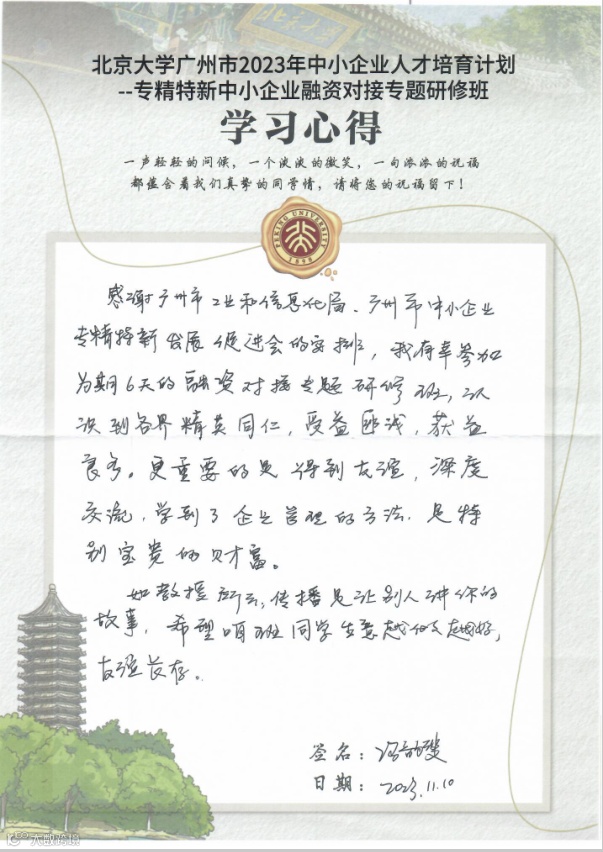 北京大学广州市2023年中小企业人才培育计划
--专精特新中小企业融资对接专题研修班
学习心得
一声轻轻的问候，一个淡淡的微笑，一句浓浓的祝福
都蕴含着我们真挚的同学情，请将您的祝福留下！
PEKING UNIVERSITY
1898
感谢广州市工业和信息化局、广州市中小企业
专精特新发展促进会的安排，我有幸参加
为期6天的融资对接专题研修班，认
次到各界精英同仁，受益匪浅，获益
良多。更重要的是得到友谊，深度
交流，学到了企业管理的方法，是特
别宝贵的财富。
如教授所云，传播是让别人讲你的
故事，希望咱班同学生意越做越好，
友谊长存。
签名：
日期：2023.11.10
大数跨境